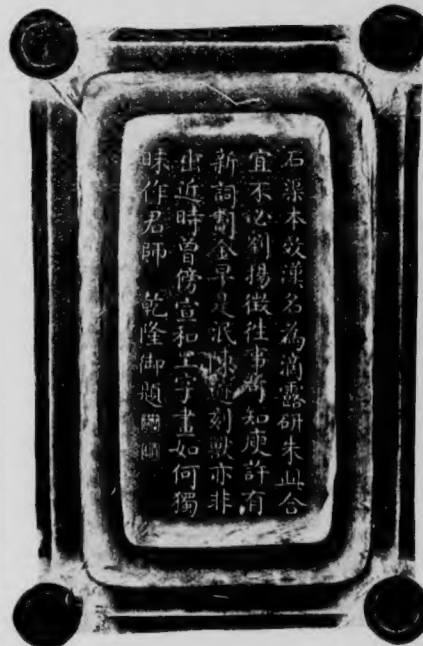 石渠本效漢名為滴露研朱此合
宜不必劉揚徵往事所知庾許有
新詞劃金早是泯陳蹟刻獸亦非
出近時曾傍宣和工字畫如何獨
昧作君師 乾隆御題